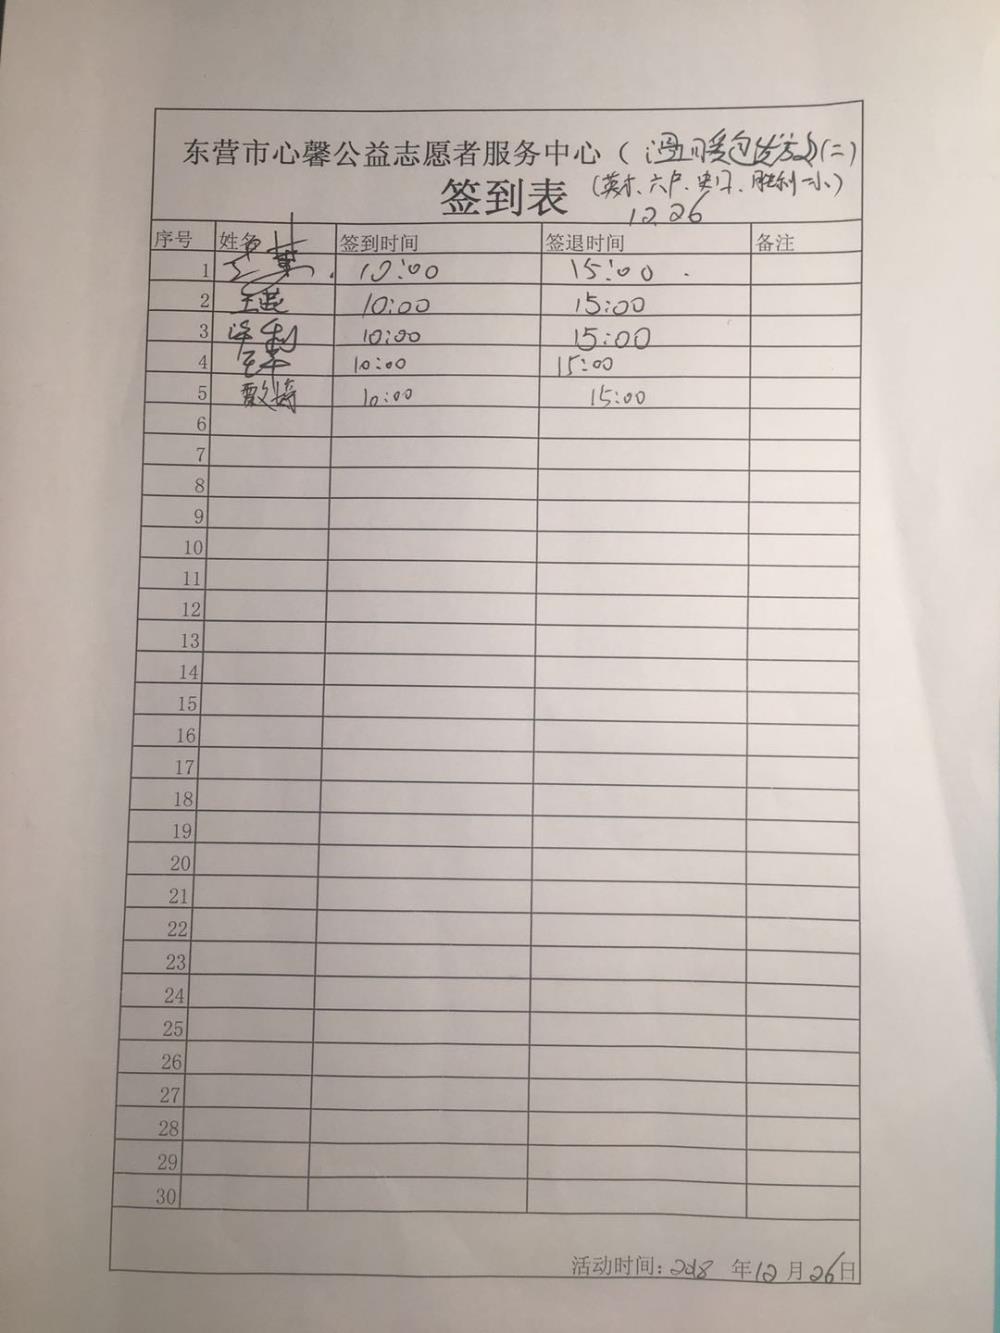 东营市心馨公益志愿者服务中心（温暖包发放(二)
签到表 (英才、六户、史口、胜利一小)
12.26
序号 姓名 签到时间 签退时间 备注
1 10:00 15:00
2 王延 10:00 15:00
3 10:00 15:00
4 10:00 15:00
5 10:00 15:00
6
7
8
9
10
11
12
13
14
15
16
17
18
19
20
21
22
23
24
25
26
27
28
29
30
活动时间：2018 年12月26日